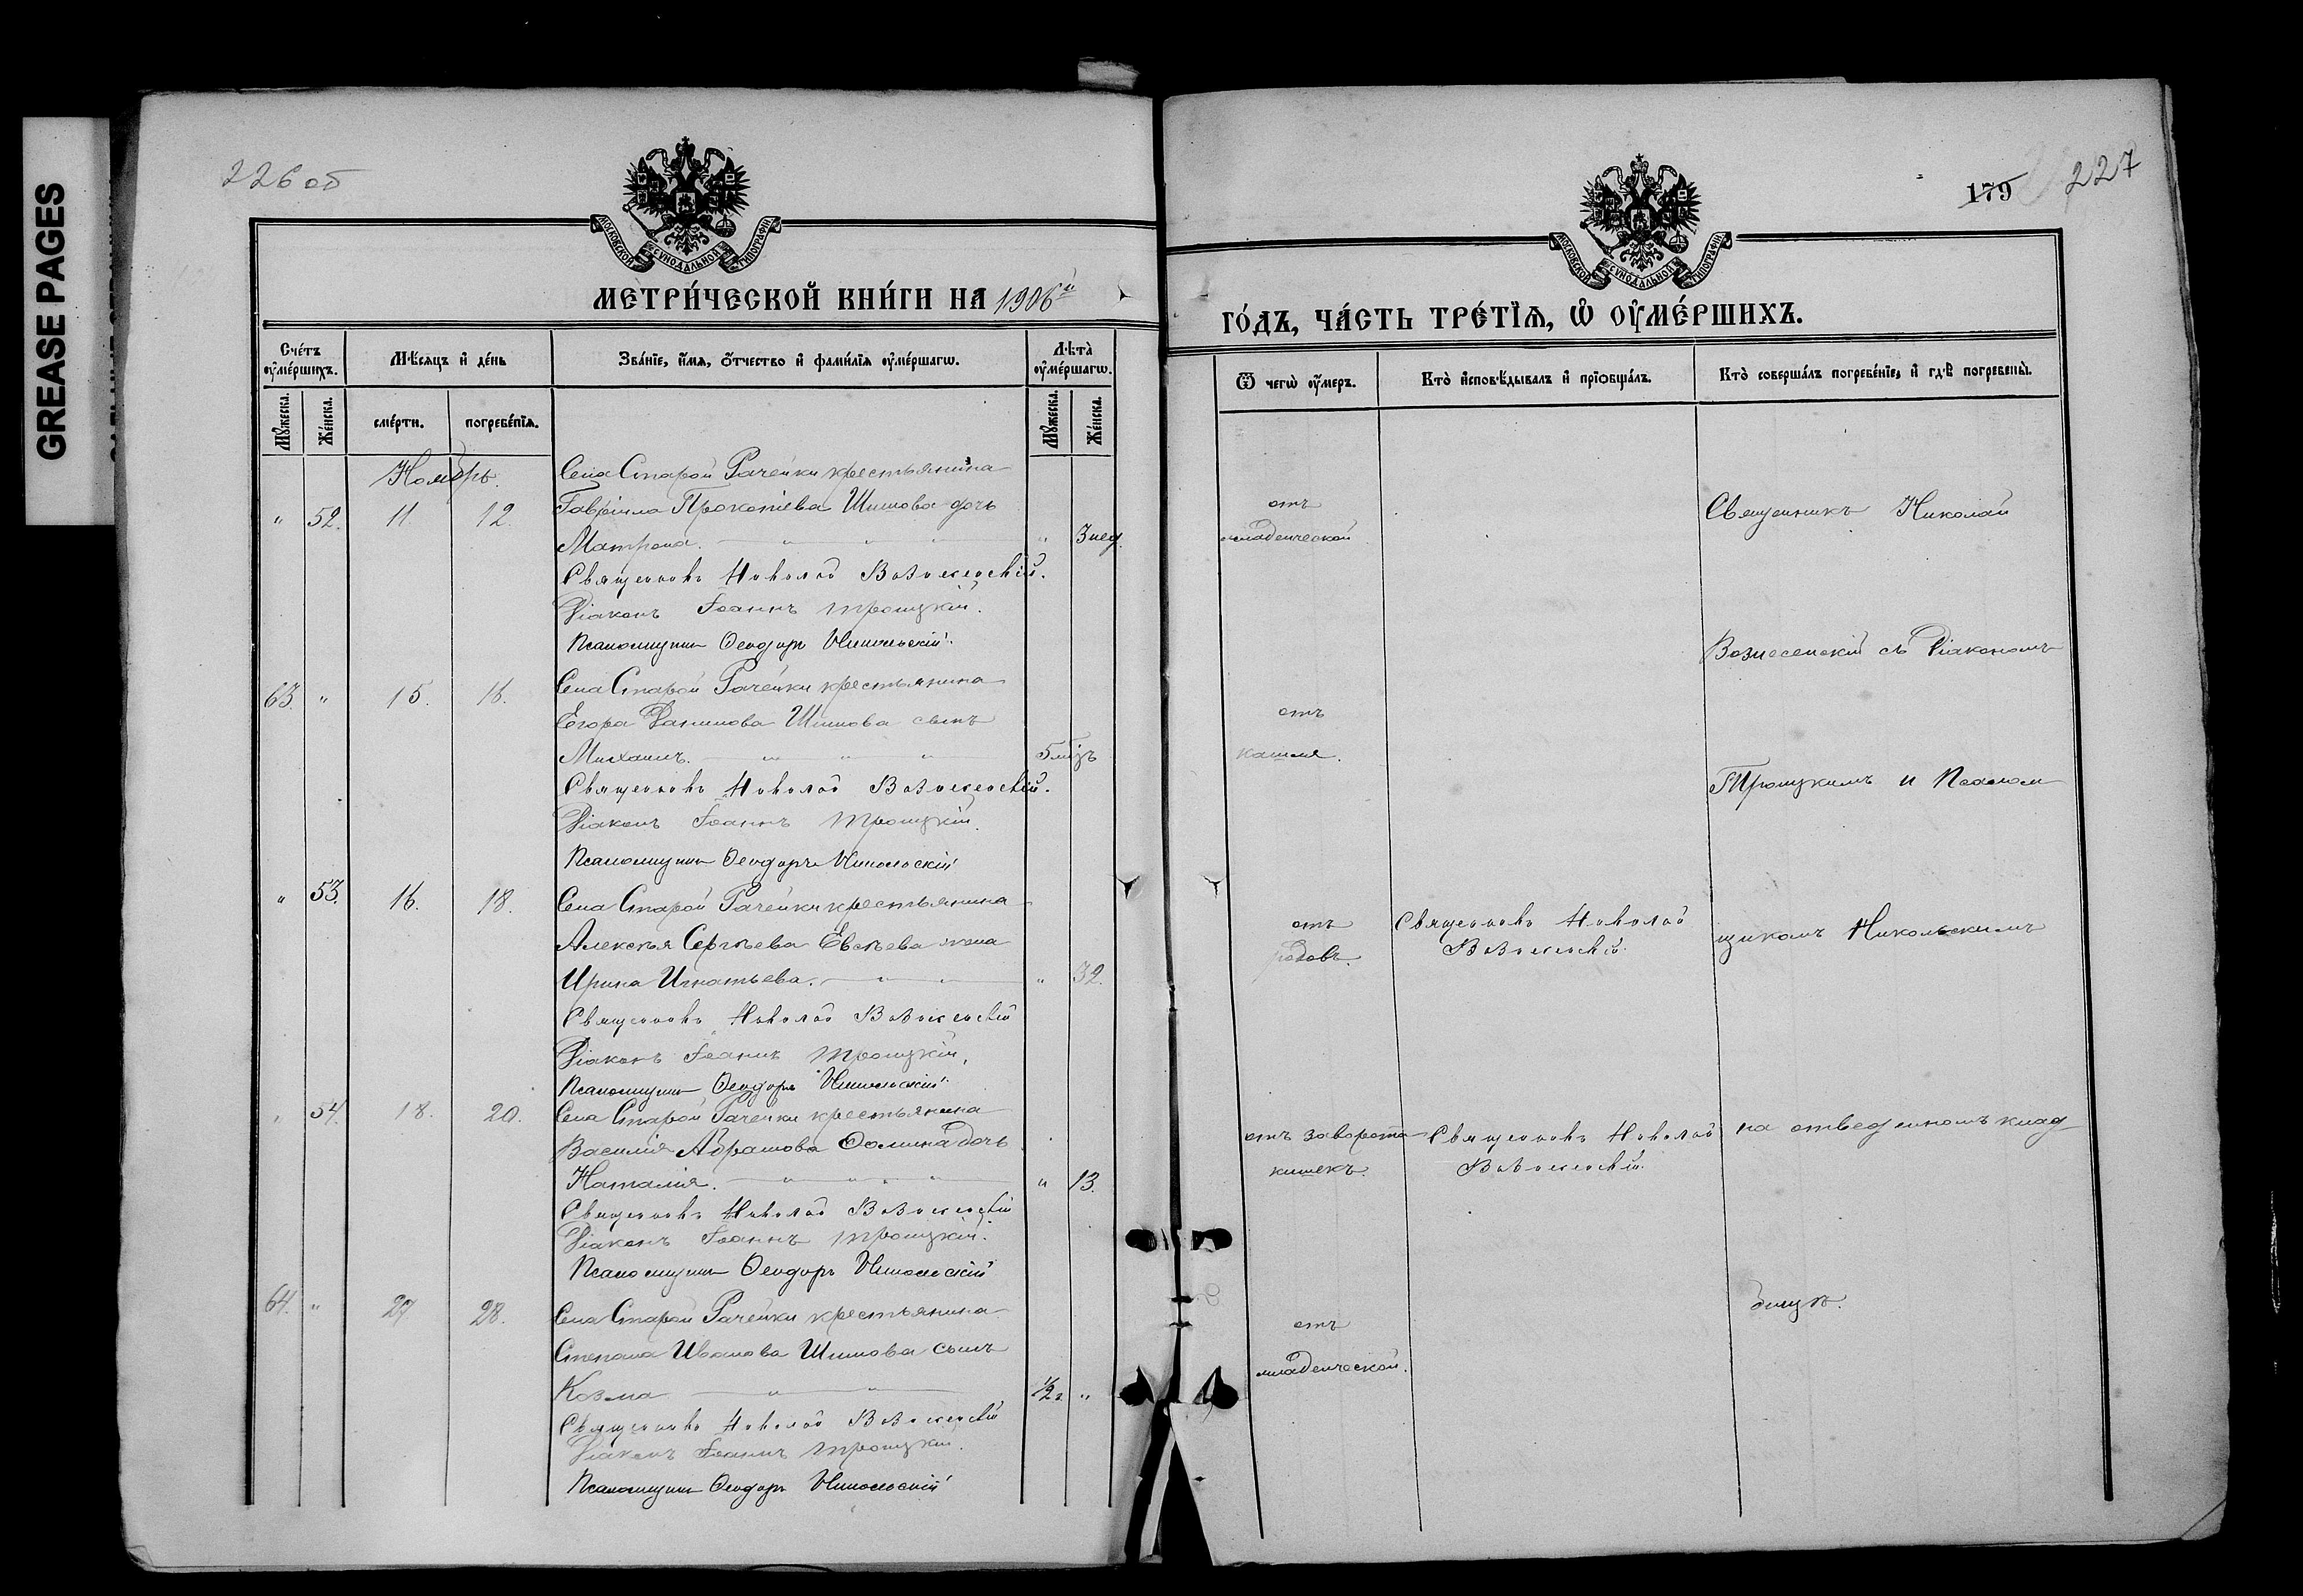 GREASE PAGES
226 об
МОСКОВСКОЙ СУНОДАЛЬНОЙ ТИПОГРАФІИ
МЕТРИ́ЧЕСКОЙ КНИ́ГИ НА 1906й
Сче́тъ ᲂу҆ме́ршихъ.
Мѣ́сяцъ и҆ де́нь
Зва́нїе, и҆́мя, ѻ҆́тчество и҆ фами́лїя ᲂу҆ме́ршагѡ.
Лѣта̀ ᲂу҆ме́ршагѡ.
Мꙋ́жеска.
Же́нска.
сме́рти.
погребе́нїя.
Мꙋ́жеска.
Же́нска.
Ноябрь.
Села Старой Рачейки крестьянина
" 52. 11 12. Гавріила Прокопіева Шишова дочь
Матрона. " " " " 3 нед.
Священникъ Николай Вознесенскій.
Діаконъ Іоаннъ Троицкій.
Псаломщикъ Ѳеодоръ Никольскій
63. " 15. 16. Села Старой Рачейки крестьянина
Егора Данилова Шишова сынъ
Михаилъ. " " " 5 мѣз
Священникъ Николай Вознесенскій.
Діаконъ Іоаннъ Троицкій.
Псаломщикъ Ѳеодоръ Никольскій
" 53. 16. 18. Села Старой Рачейки крестьянина
Алексѣя Сергѣева Евсѣева жена
Ирина Игнатьева. " " " 32.
Священникъ Николай Вознесенскій
Діаконъ Іоаннъ Троицкій,
Псаломщикъ Ѳеодоръ Никольскій
" 54. 18. 20. Села Старой Рачейки крестьянина
Василія Абрамова Ѳомина дочь
Наталія. " " " " 13.
Священникъ Николай Вознесенскій
Діаконъ Іоаннъ Троицкій.
Псаломщикъ Ѳеодоръ Никольскій
64. " 27 28. Села Старой Рачейки крестьянина
Степана Иванова Шишова сынъ
Козма " " 1/2 г "
Священникъ Николай Вознесенскій
Діаконъ Іоаннъ Троицкій.
Псаломщикъ Ѳеодоръ Никольскій
179 227
МОСКОВСКОЙ СУНОДАЛЬНОЙ ТИПОГРАФІИ
ГО́ДЪ, ЧА́СТЬ ТРЕ́ТЇѦ, Ѡ҆ ᲂУ҆МЕ́РШИХЪ.
Ѿ чегѡ̀ ᲂу҆́меръ.
Кто̀ и҆сповѣ́дывалъ и҆ прїобща́лъ.
Кто̀ соверша́лъ погребе́нїе, и҆ гдѣ̀ погребены̀.
отъ
младенческой
Священникъ Николай
Вознесенскій съ Діакономъ
отъ
кашля.
Троицкимъ и Псалом
отъ
родовъ.
Священникъ Николай
Вознесенскій.
щикомъ Никольскимъ
отъ заворота
кишекъ.
Священникъ Николай
Вознесенскій.
на отведенномъ клад
бищѣ.
отъ
младенческой.